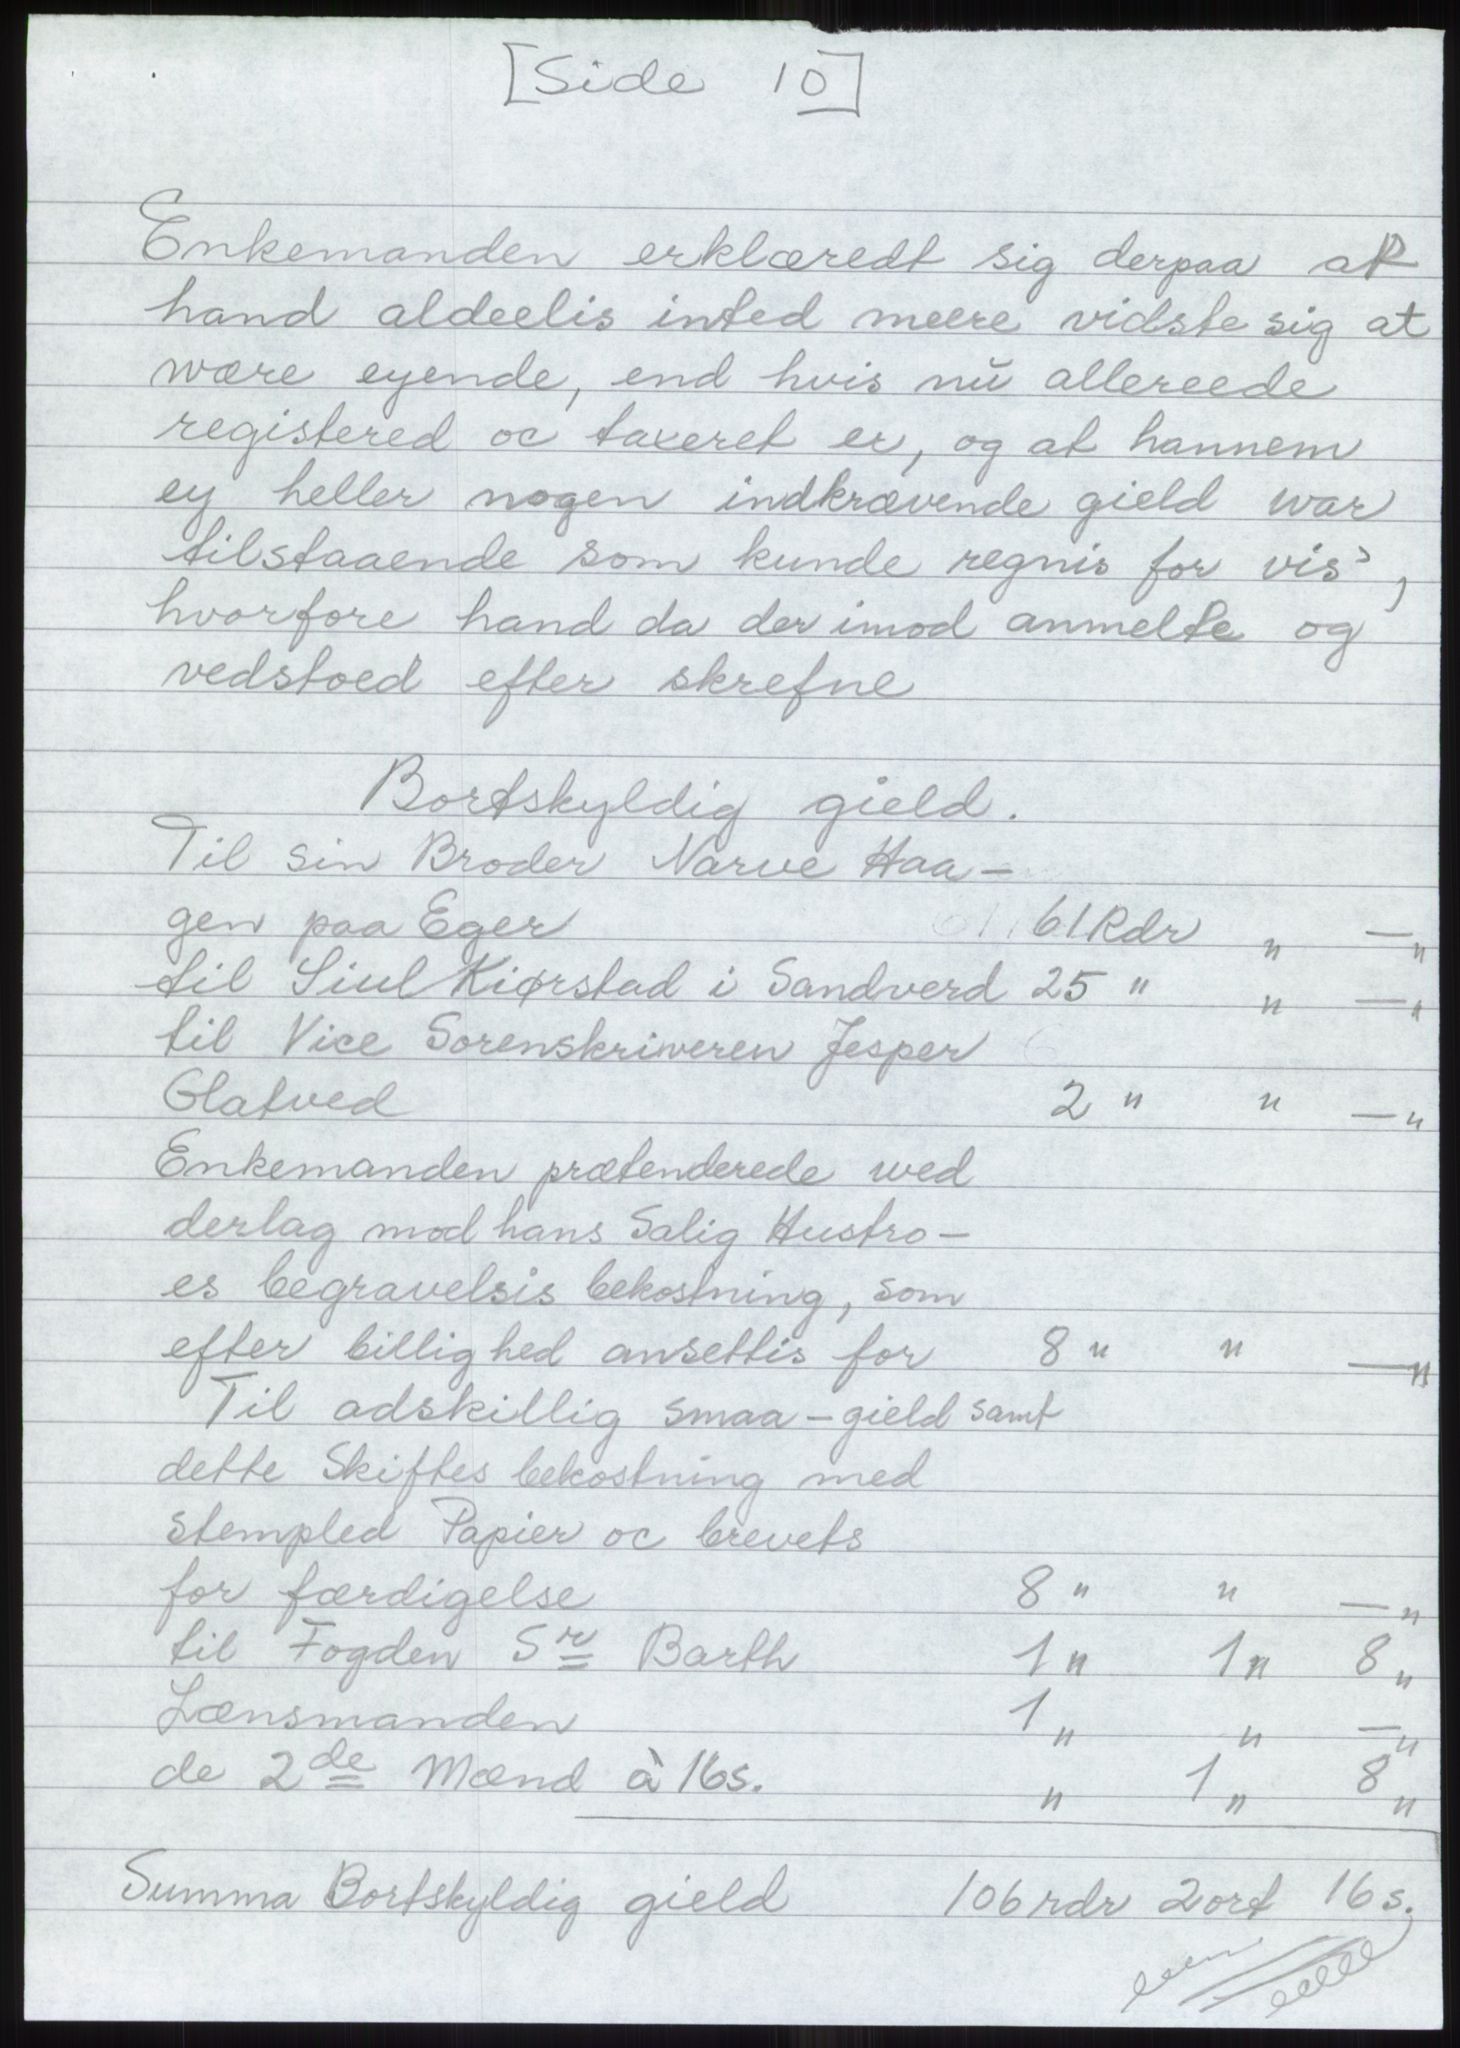 [Side 10]
Enkemanden erklæredt sig derpaa at
hand aldeelis inted meere vidste sig at
wære eyende, end hvis nŭ allereede
registered oc taxeret er, og at hannem
ey heller nogen indkrævende gield war
tilstaaende som kunde regnis for vis,
hvorfore hand da der imod anmelte og
vedstoed efter skrefne
Bortskyldig gield.
Til sin Broder Narve Haa-
gen paa Eger 61 Rdr " — "
til Siul Kiørstad i Sandverd 25 " " — "
til Vice Sorenskriveren Jesper
Glatved 2 " " — "
Enkemanden prætenderede wed
derlag mod hans Salig Hustro-
es begravelsis bekostning, som
efter billighed ansettis for 8 " " — "
Til adskillig smaa-gield samt
dette Skiftes bekostning med
stempled Papier oc brevets
for færdigelse 8 " " — "
til Fogden Sr Barth 1 " 1 " 8 "
Lænsmanden 1 " " — "
de 2de Mænd à 16s. " 1 " 8 "
Summa Bortskyldig gield 106 rdr 2 ort 16 s.